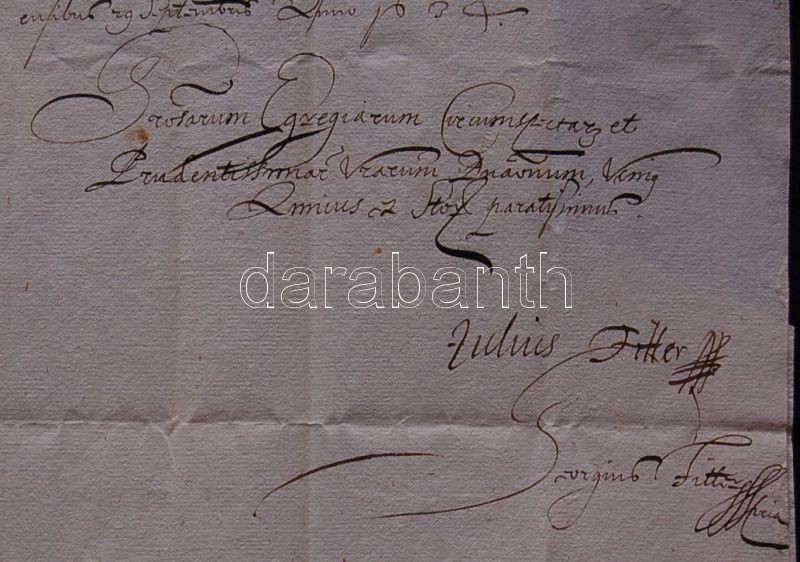 ensibus 29 Septembris Anno 1634.
Grosarum Egregiarum Circumspectar et
Prudentissimar Vrarum Dnaonum,
Amicus et paratissimus.
darabanth
Julius Fitter
Georgius Fitter